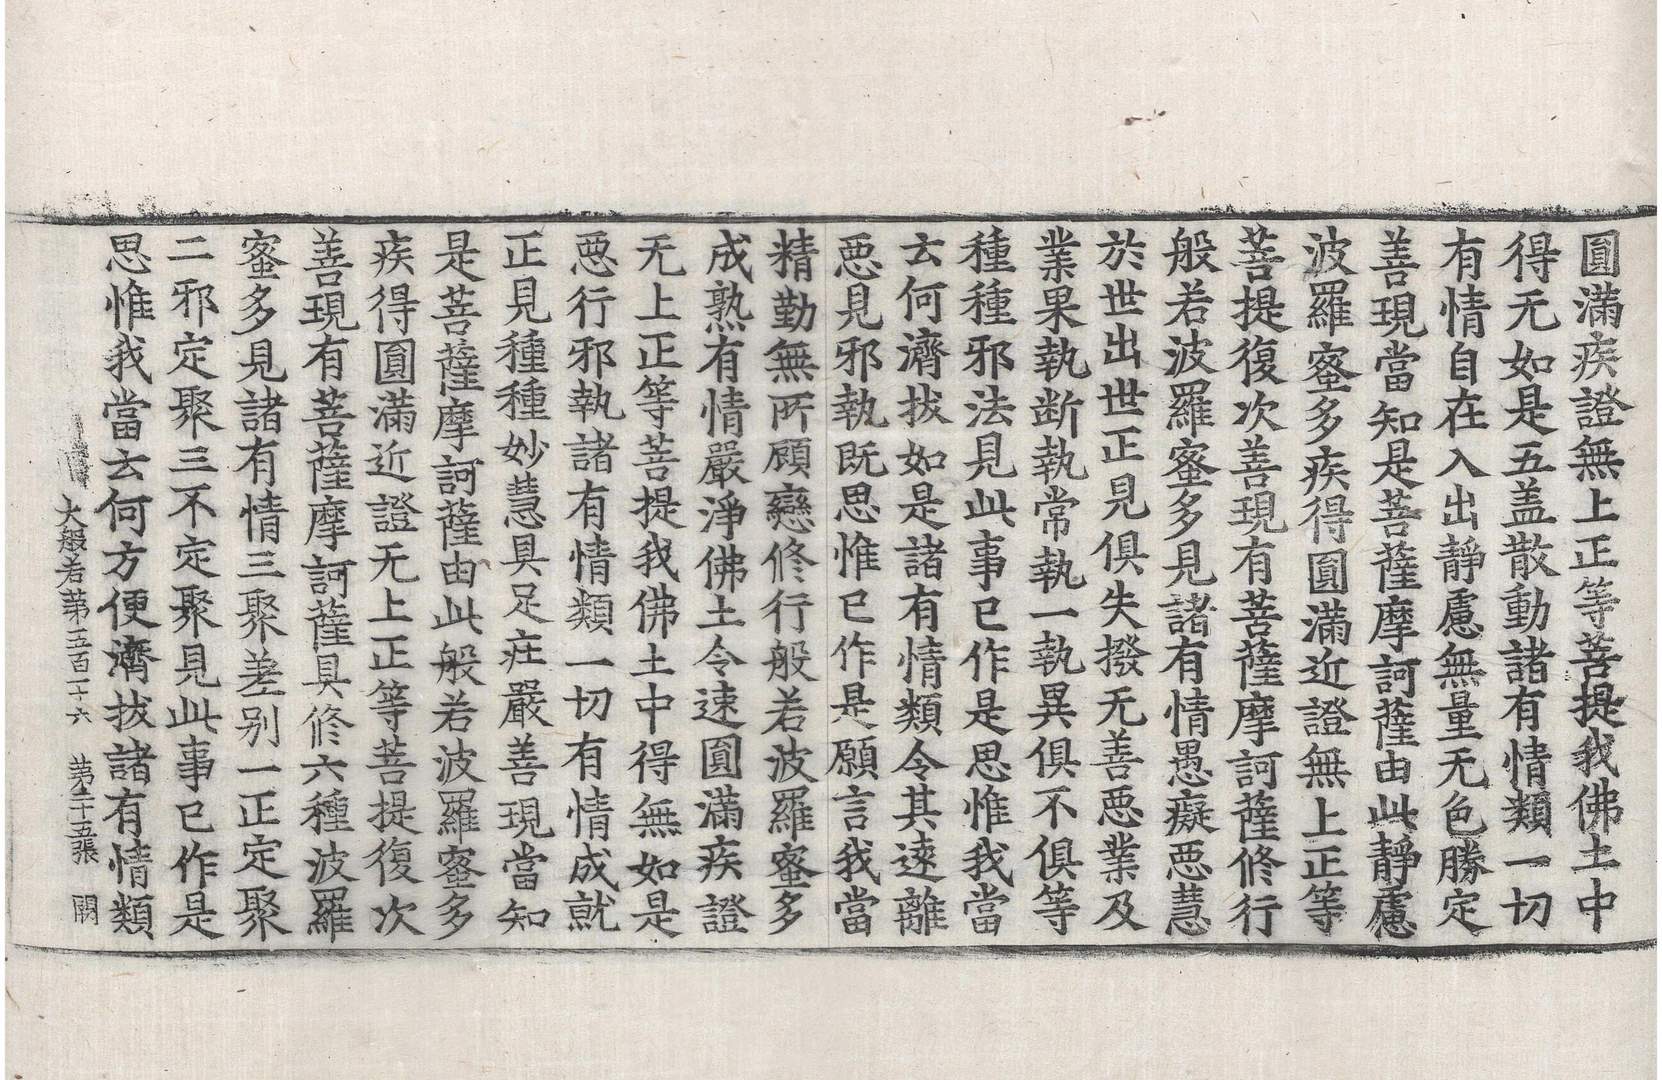 圓滿疾證無上正等菩提我佛土中
得无如是五盖散動諸有情類一切
有情自在入出靜慮無量无色勝定
善現當知是菩薩摩訶薩由此靜慮
波羅蜜多疾得圓滿近證無上正等
菩提復次善現有菩薩摩訶薩修行
般若波羅蜜多見諸有情愚癡惡慧
於世出世正見俱失撥无善惡業及
業果執断執常執一執異俱不俱等
種種邪法見此事已作是思惟我當
云何濟拔如是諸有情類令其遠離
惡見邪執既思惟已作是願言我當
精勤無所顧戀修行般若波羅蜜多
成熟有情嚴淨佛土令速圓滿疾證
无上正等菩提我佛土中得無如是
惡行邪執諸有情類一切有情成就
正見種種妙慧具足莊嚴善現當知
是菩薩摩訶薩由此般若波羅蜜多
疾得圓滿近證无上正等菩提復次
善現有菩薩摩訶薩具修六種波羅
蜜多見諸有情三聚差別一正定聚
二邪定聚三不定聚見此事已作是
思惟我當云何方便濟拔諸有情類
大般若第五百二十六 第二十五張 閼